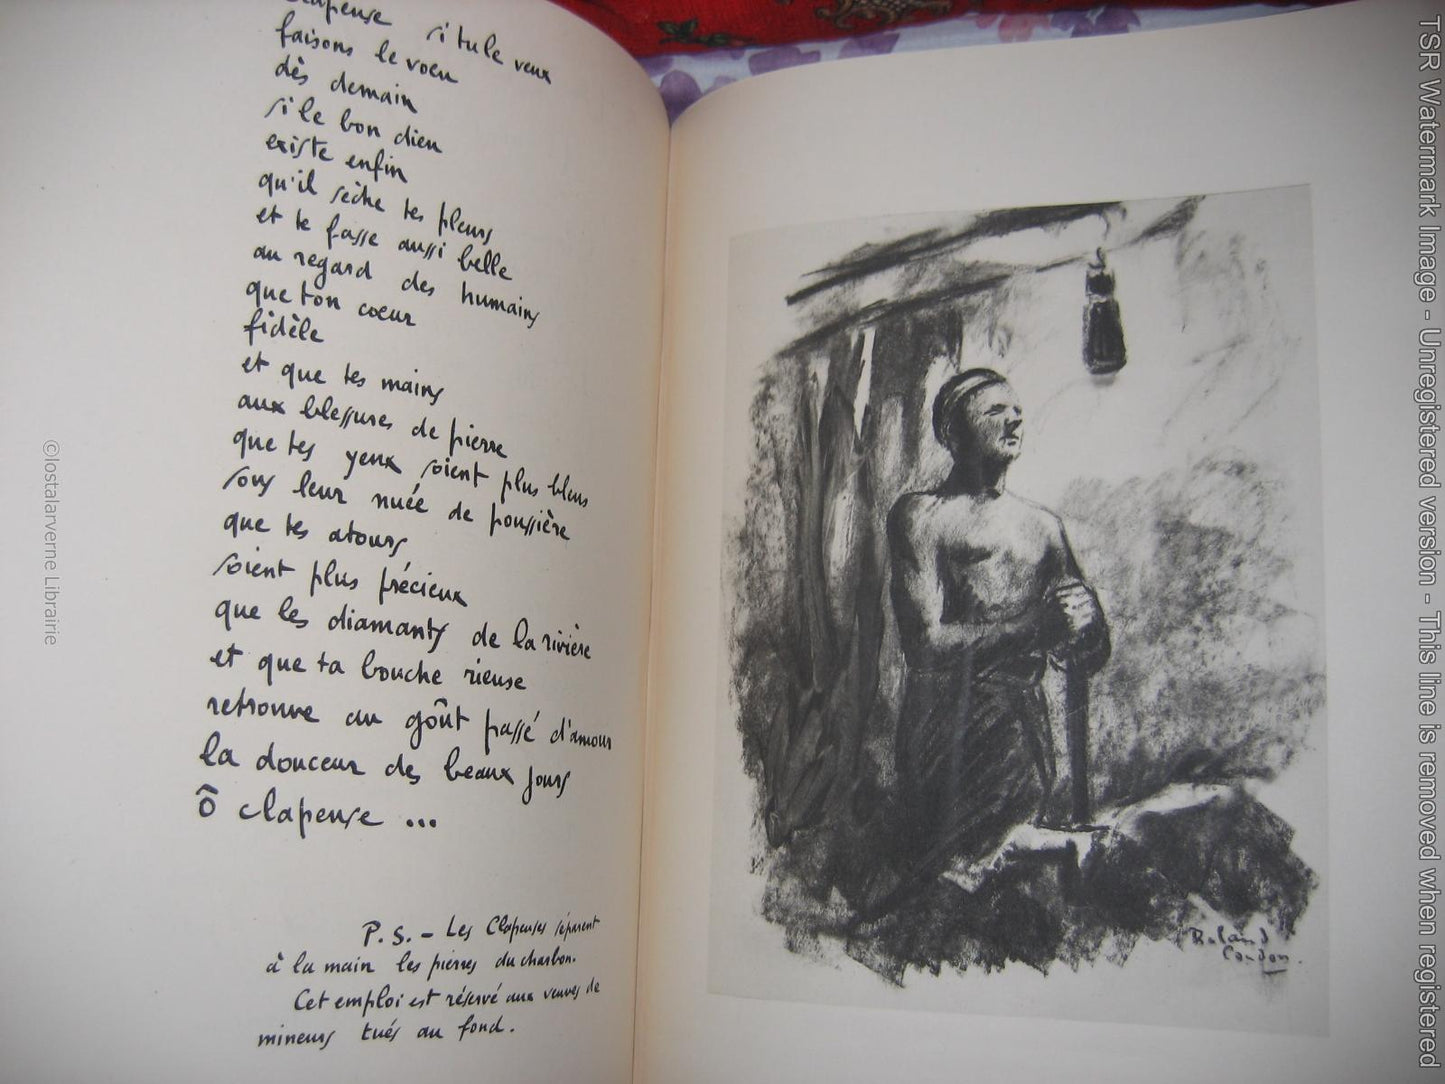 Clapeuse si tu le veux
faisons le voeu
dès demain
si le bon dieu
existe enfin
qu'il sèche tes pleurs
et te fasse aussi belle
au regard des humains
que ton coeur
fidèle
et que tes mains
aux blessures de pierre
que tes yeux soient plus bleus
sous leur nuée de poussière
que tes atours
soient plus précieux
que les diamants de la rivière
et que ta bouche rieuse
retrouve au goût passé d'amour
la douceur des beaux jours
ô clapeuse ...
P.S. - Les Clapeuses séparent
à la main les pierres du charbon.
Cet emploi est réservé aux veuves de
mineurs tués au fond.
Roland
©lostalarverne Librairie
TSR Watermark Image - Unregistered version - This line is removed when registered